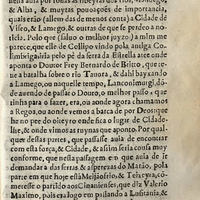 & Alba, & muytas pouoações de importancia,
quais erão (allem das de menos conta) a Cidade de
Viseo, & Lamego, & outras de que se perdeo a noti-
cia. Pelo que (saluo o melhor juyzo) A my me
parece, que elle de Collipo vindo pola antiga Co-
nimbriga, & dela pè da serra da Estrella atee onde
aponta o Douctor Frey Bernardo de Britto, que
e a batalha sobre rio Tauora, & dahi bayxando
a Lamego, ou naquelle tempo, Lancon
do de auer de passar o Douro, o melhor passo, que
tinha para o fazer, era, ou aonde agora chamamos
a Regoa, ou aonde vemos a barca de Dom Bro
ne por de oliteyro onde fica o lugar de Cidade-
lhe, & onde vimos as ruynas que aponto. Por qual-
quer destas partes, que passasse auia de encontrar
com esta força, & Cidade, & assim seria cousa muy
conforme, que nesta passagem em que auia de
demandar as terras & asperezas do Marão, pola
parte em que hoje està Meijãofrio, & Teixeyra, co-
metesse o partido aos Cinanienses, que diz Valerio
Maximo, pois era logo em passando a Lusitania, &